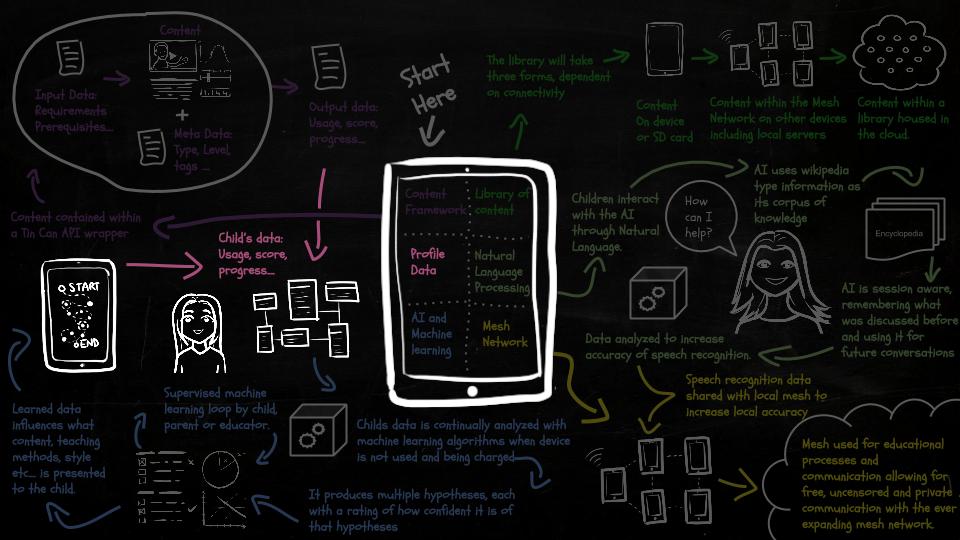 Content
Input Data:
Requirements
Prerequisites...
+
Meta Data:
Type, Level,
tags ...
Output data:
Usage, score,
progress...
Start
Here
The library will take
three forms, dependent
on connectivity
Content
On device
or SD card
Content within the Mesh
Network on other devices
including local servers
Content within a
library housed in
the cloud.
Content contained within
a Tin Can API wrapper
Child's data:
Usage, score,
progress...
START
END
Content
Framework
Library of
content
Profile
Data
Natural
Language
Processing
AI and
Machine
learning
Mesh
Network
Children interact
with the AI
through Natural
Language.
How
can I
help?
AI uses wikipedia
type information as
its corpus of
knowledge
Encyclopedia
AI is session aware,
remembering what
was discussed before
and using it for
future conversations
Data analyzed to increase
accuracy of speech recognition.
Speech recognition data
shared with local mesh to
increase local accuracy
Mesh used for educational
processes and
communication allowing for
free, uncensored and private
communication with the ever
expanding mesh network.
Childs data is continually analyzed with
machine learning algorithms when device
is not used and being charged
It produces multiple hypotheses, each
with a rating of how confident it is of
that hypotheses
Supervised machine
learning loop by child,
parent or educator.
Learned data
influences what
content, teaching
methods, style
etc... is presented
to the child.